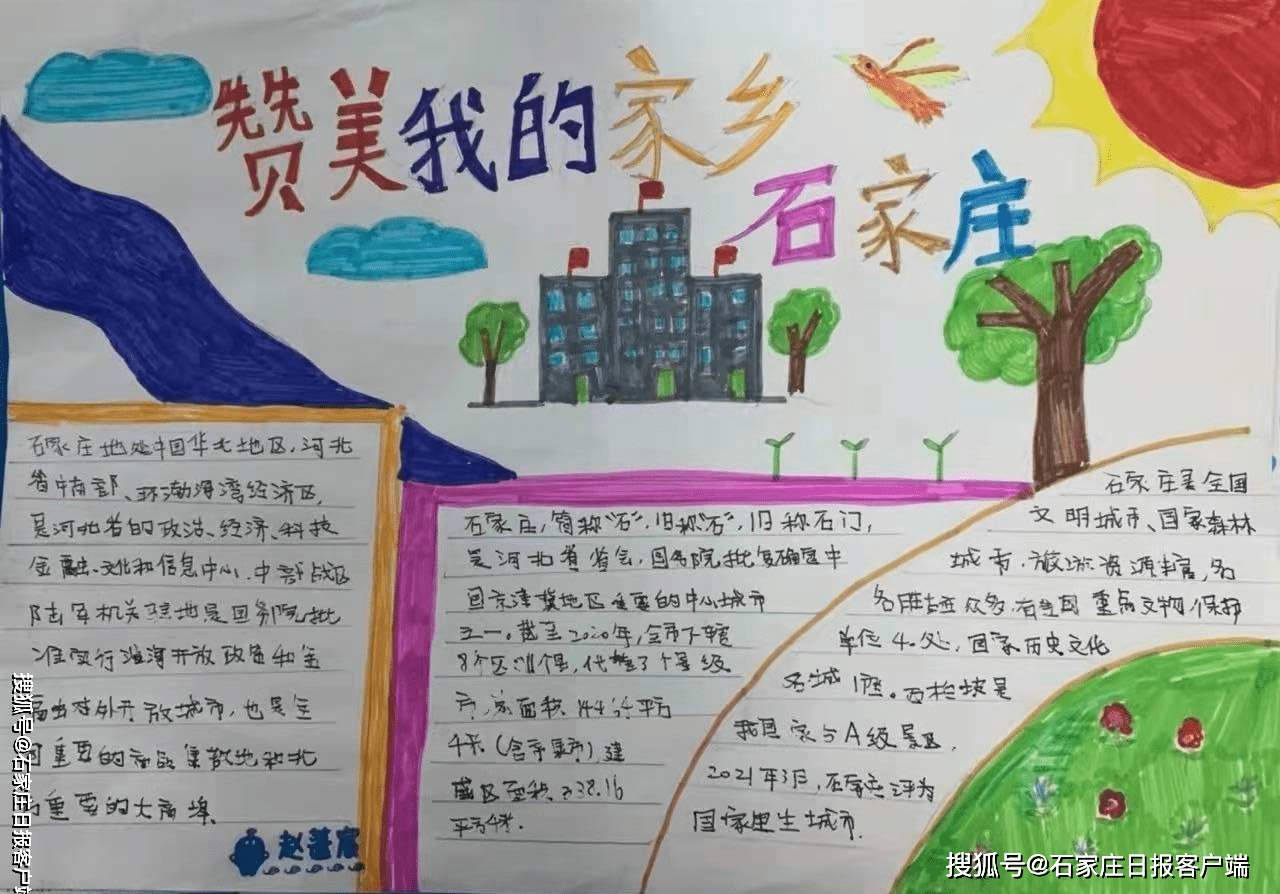 赞美我的家乡
石家庄
石家庄地处中国华北地区,河北
省中南部、环渤海湾经济区,
是河北省的政治、经济、科技
金融、文化和信息中心,中部战区
陆军机关驻地是国务院批
准实行沿海开放政策和金
对外开放城市,也是全
重要的商品集散地和北
重要的大商埠.
赵
石家庄,简称“石”,旧称“石”,旧称石门,
是河北省省会,国务院批复确定中
国京津冀地区重要的中心城市
之一。截至2020年,全市下辖
8个区 11个县,代 3个县级
市,总面积 平方
千米(含辛集市),建
区面积 338.16
平方千米.
石家庄是全国
文明城市、国家森林
城市.旅游资源丰富,名
名胜古迹众多,有全国重点文物保护
单位40处,国家历史文化
名城1座。西柏坡是
我国家5A级景区.
2021年3月,石家庄评为
国家卫生城市.
搜狐号@石家庄日报客户端
搜狐号@石家庄日报客户端